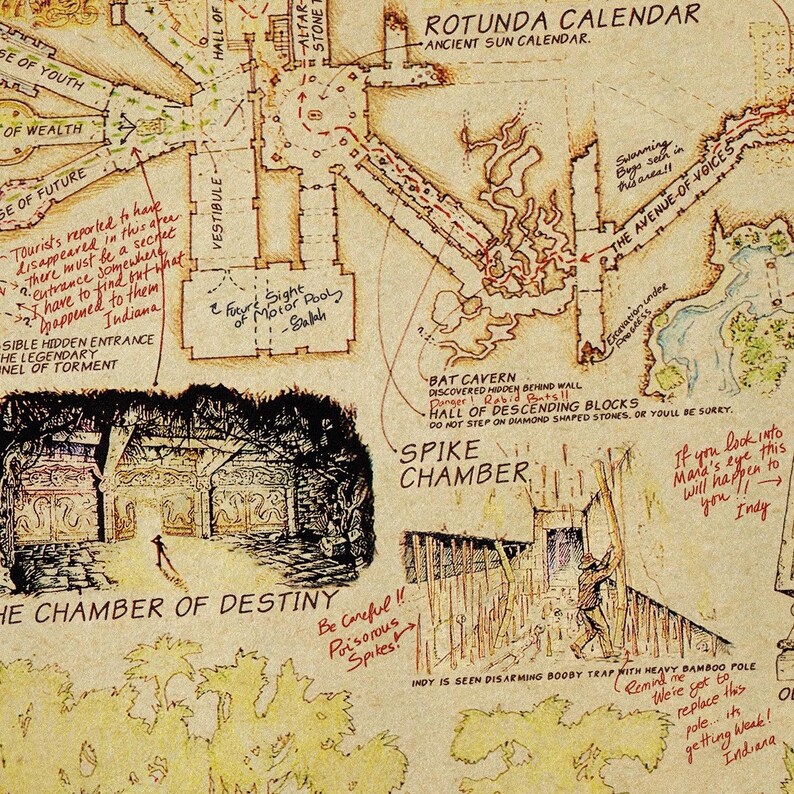 ROTUNDA CALENDAR
ANCIENT SUN CALENDAR.
HALL OF
ALTAR
STONE T
SE OF YOUTH
OF WEALTH
SE OF FUTURE
VESTIBULE
Swarming
Bugs seen in
this area!!
THE AVENUE OF VOICES
Tourists reported to have
disappeared in this area
there must be a secret
entrance somewhere
I have to find out what
happened to them
Indiana
Future Sight
of Motor Pool
Sallah
Excavation under
PROGRESS
SSIBLE HIDDEN ENTRANCE
THE LEGENDARY
NNEL OF TORMENT
BAT CAVERN
DISCOVERED HIDDEN BEHIND WALL
Danger! Rabid Bats!!
HALL OF DESCENDING BLOCKS
DO NOT STEP ON DIAMOND SHAPED STONES. OR YOU'LL BE SORRY.
SPIKE
CHAMBER
If you look into
Mara's eye this
will happen to
you!!
Indy
HE CHAMBER OF DESTINY
Be Careful!!
Poisorous
Spikes!
INDY IS SEEN DISARMING BOOBY TRAP WITH HEAVY BAMBOO POLE
Remind me
We've got to
replace this
pole... its
getting Weak!
Indiana
OL